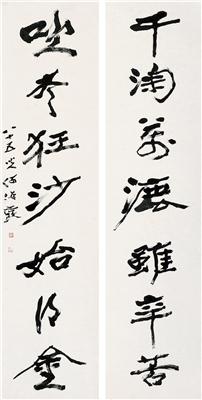 千淘萬漉雖辛苦
吹尽狂沙始得金
八十五叟何海霞